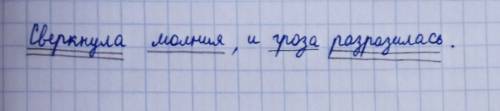 Сверкнула молния, и гроза разразилась.